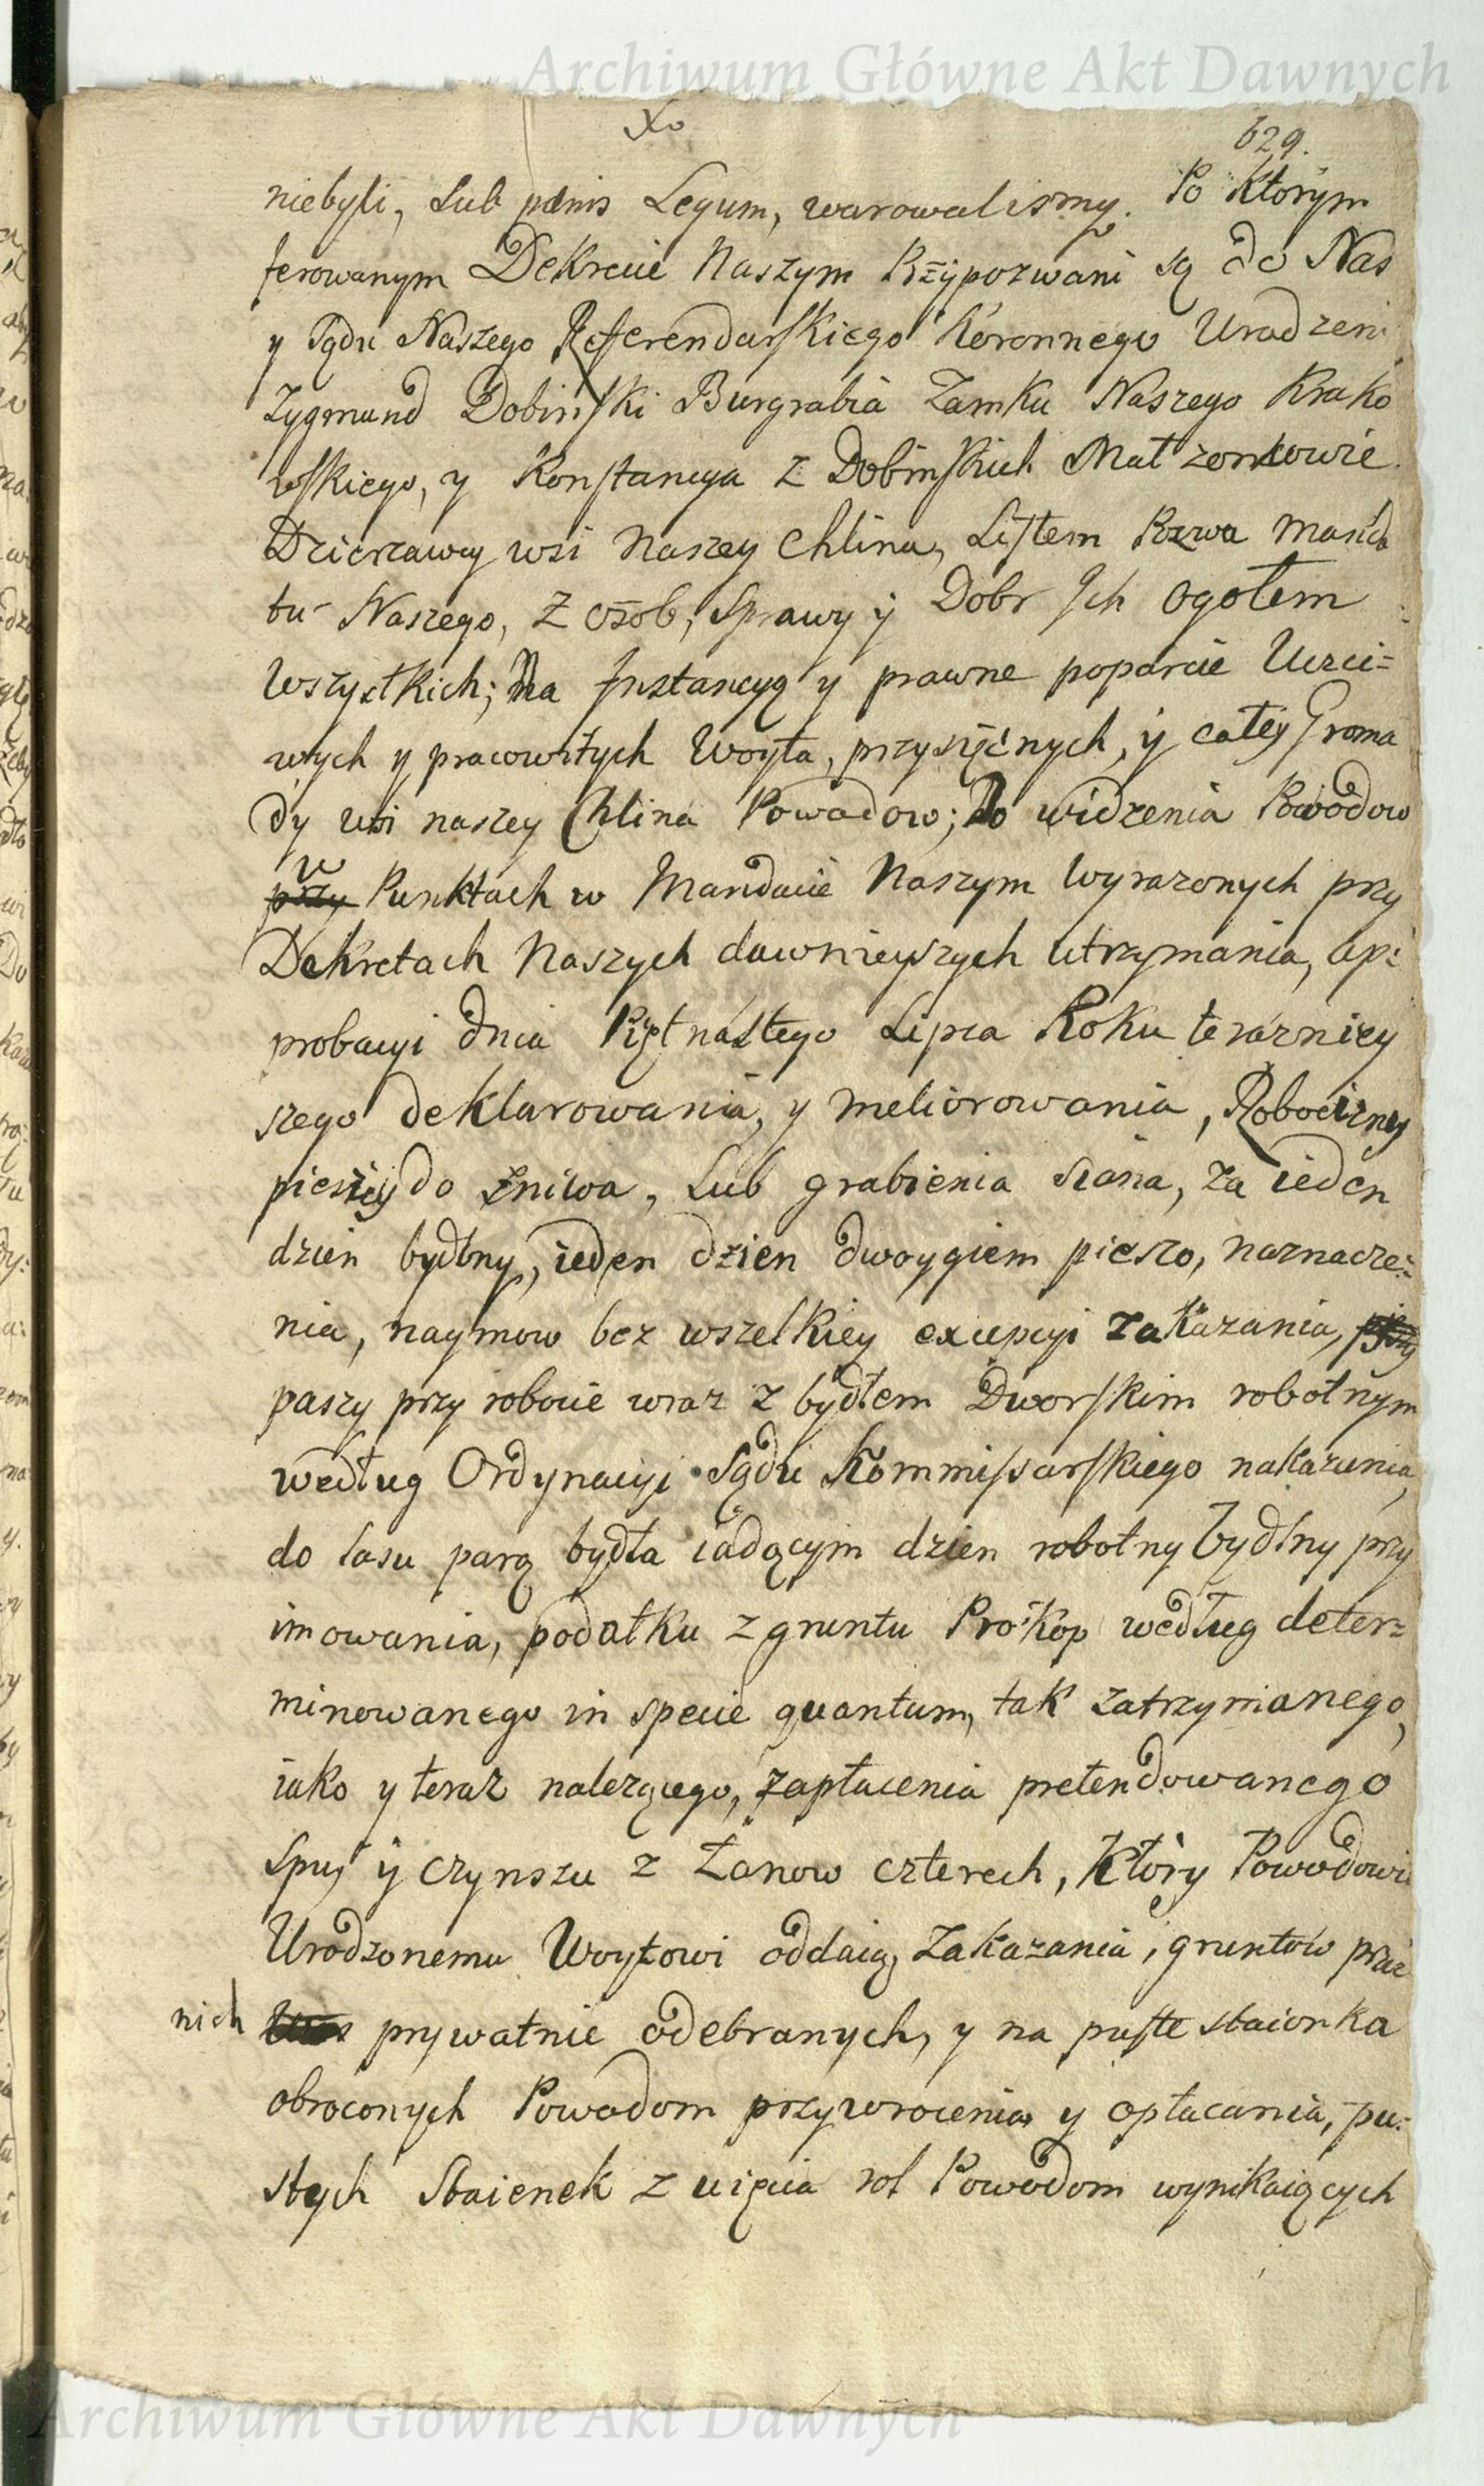 Archiwum Główne Akt Dawnych
Xo
629.
niebyli, Lub pœnis Legum, warowalismy. Po ktorym
ferowanym Dekrecie Naszym Przypozwani są do Nas
y Sądu Naszego Referendarskiego Koronnego Urodzeni
Zygmund Dobinski Burgrabia Zamku Naszego Krako
wskiego, y Konstancya z Dobinskich Małzonkowie
Dzierzawcy wsi Naszey Chlina, Listem Pozwa Manda
tu Naszego, z osob, Sprawy y Dobr Ich ogołem
Wszystkich; Na Instancyą y prawne poparcie Uczci=
wych y pracowitych Woyta, przysięznych, y całey Groma
dy wsi naszey Chlina Powodow; Do widzenia Powodow
w
przy Punktach w Mandacie Naszym wyrazonych przy
Dekretach Naszych dawnieyszych utrzymania, ap:
probacyi dnia Piętnastego Lipca Roku terazniey
szego deklarowania, y meliorowania, Robocizney
pieszey do zniwa, Lub grabienia siana, za ieden
dzien bydlny, ieden dzien dwoygiem pieszo, naznacze=
nia, naymow bez wszelkiey excepcyi zakazania, przy
paszy przy robocie wraz z bydłem Dworskim robotnym
według Ordynacyi Sądu Kommissarskiego nakazania,
do lasu parą bydła iadącym dzien robotny bydlny przy
imowania, podatku z gruntu Prokop według deter=
minowanego in specie quantum, tak zatrzymanego,
iako y teraz nalezącego, zapłacenia pretendowanego
Spuś y czynszu z Łanow czterech, który Powodowie
Urodzonemu Woytowi oddaią, zakazania, gruntów prze
nich prywatnie odebranych, y na puste staionka
obroconych Powodom przywrocenia y opłacania, pu=
stych Staienek z uięcia rol Powodom wynikaiących
Archiwum Główne Akt Dawnych